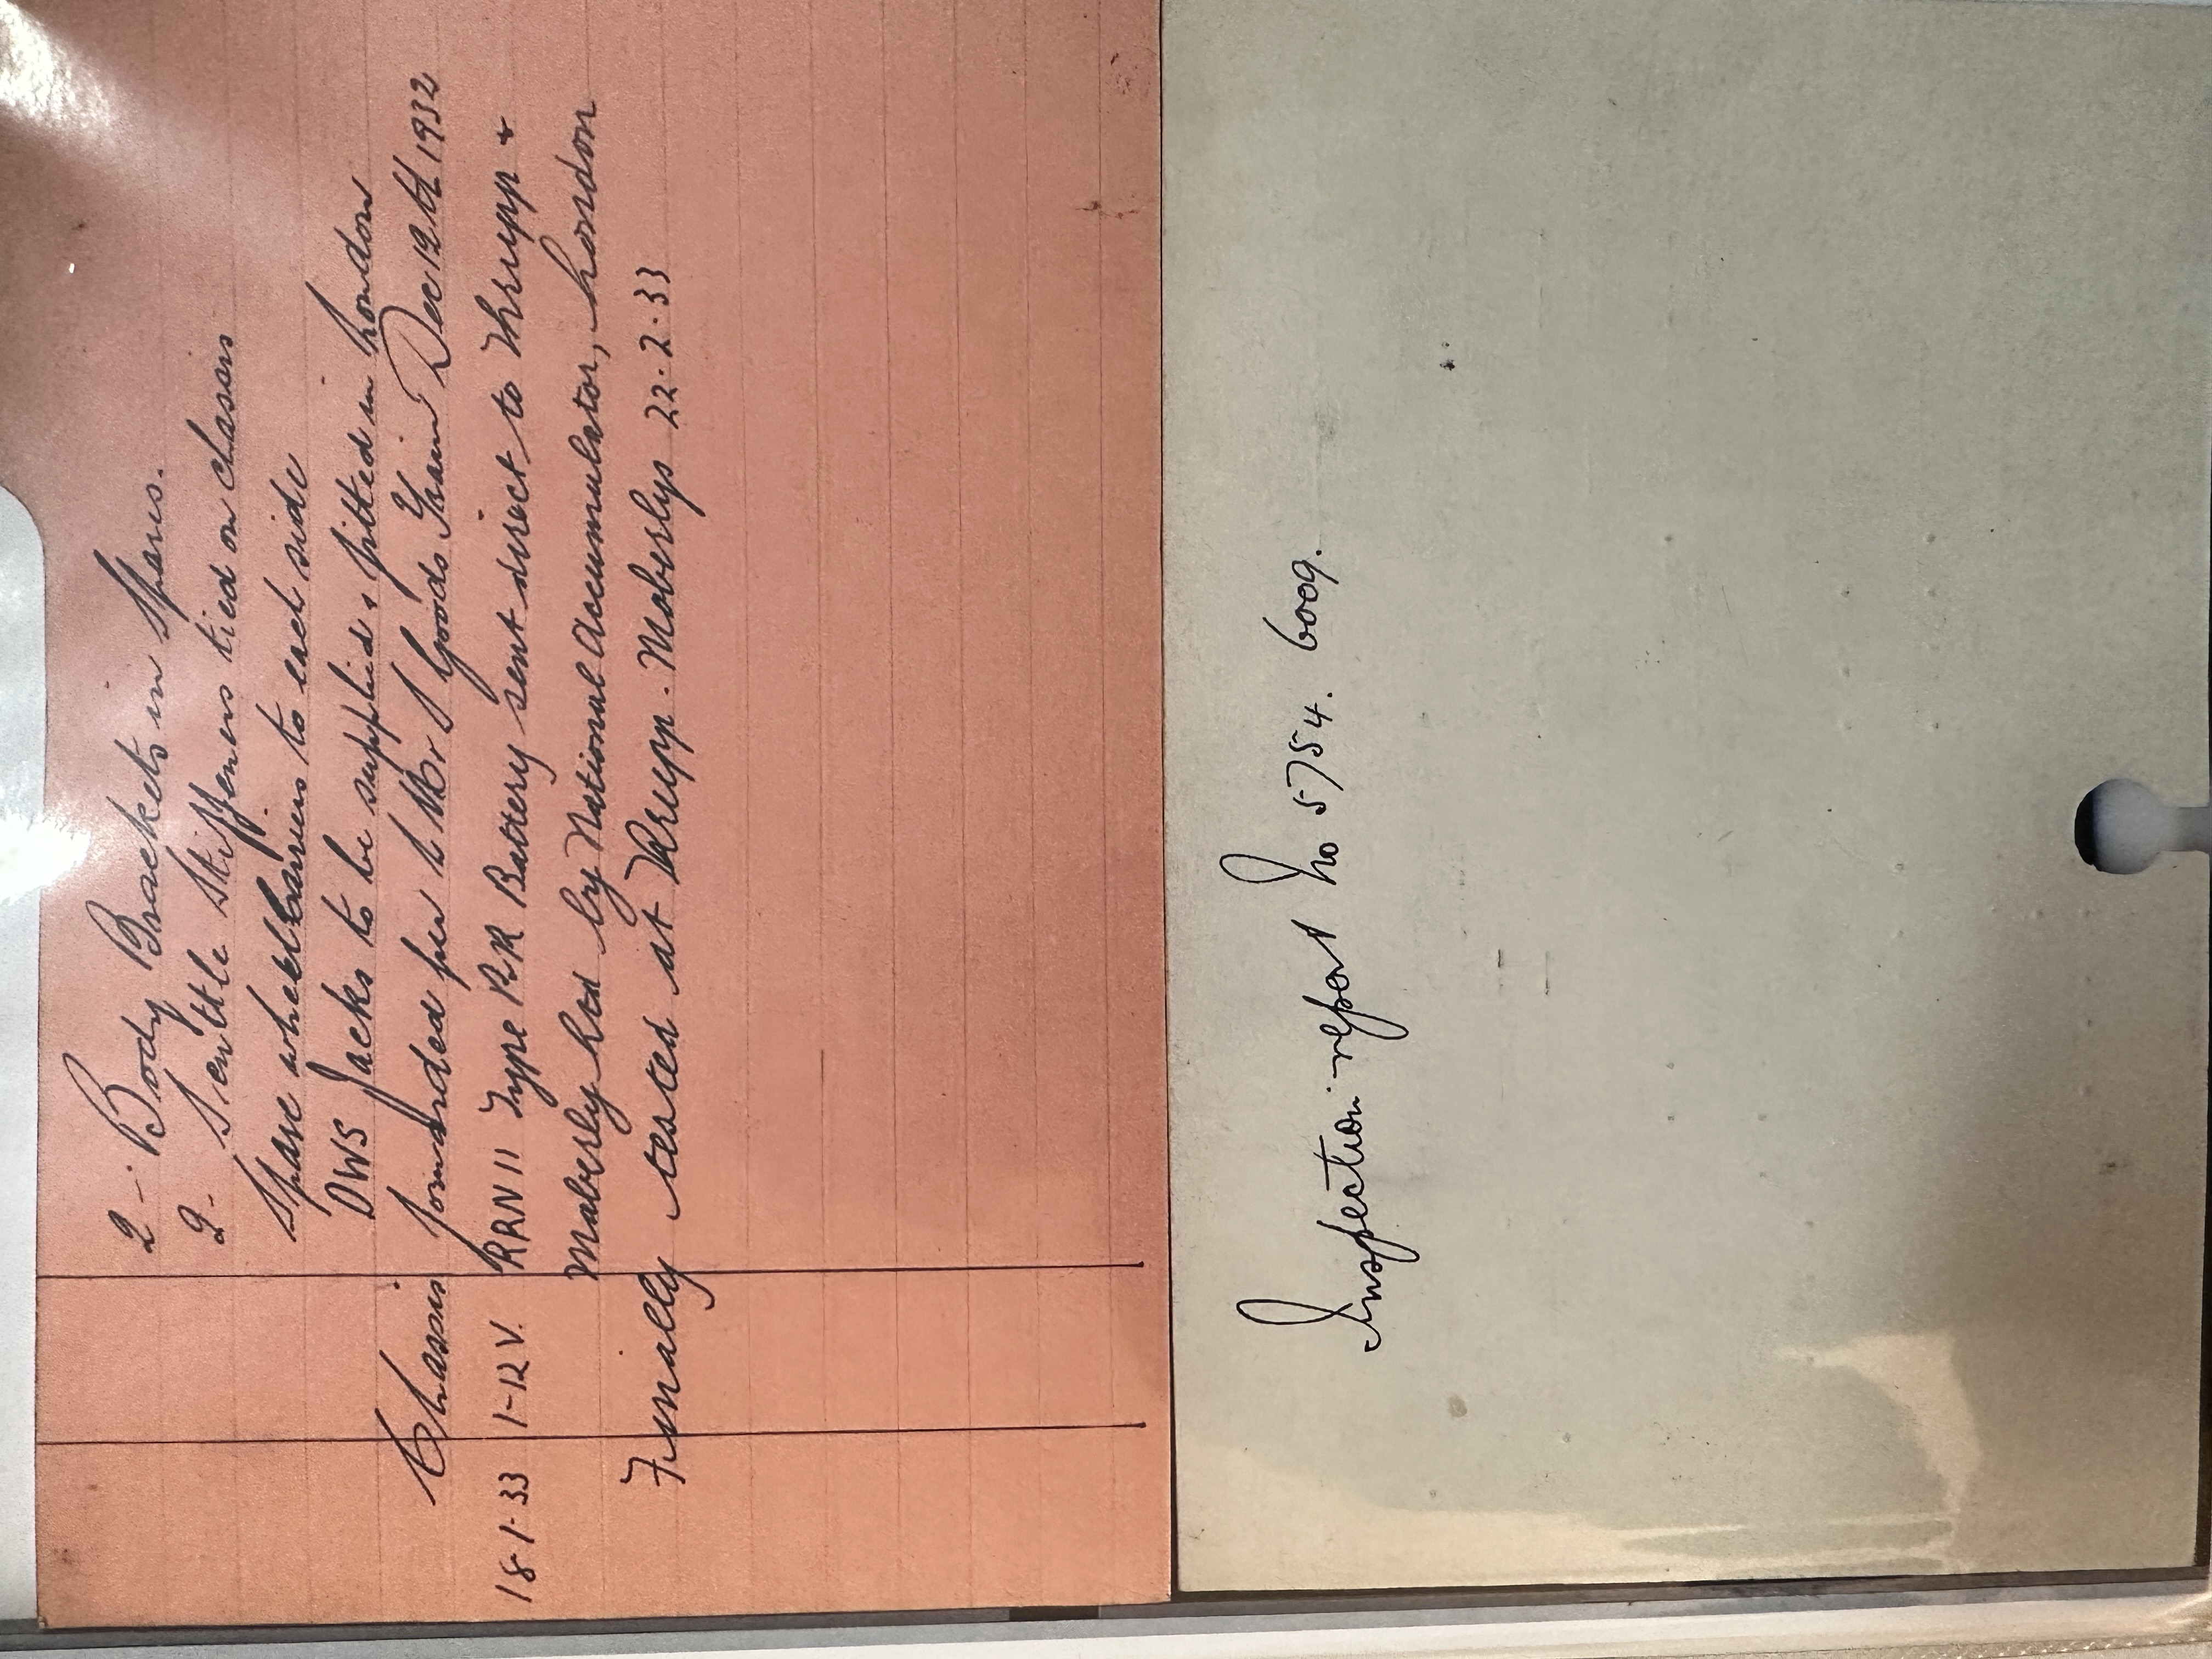 2 - Body Brackets in Spares.
2 - Scuttle Stiffeners tied on chassis
Spare wheel carriers to each side
DWS Jacks to be supplied & fitted in London
Chassis forwarded per L M & S Goods Train Dec 12th 1932
18.1.33 1-12V. RRN11 Type P.R Battery sent direct to Thrupp &
Maberly Ltd by National Accumulator, London
Finally tested at Thrupp. Maberlys 22.2.33
Inspection report No 5754. 6009.